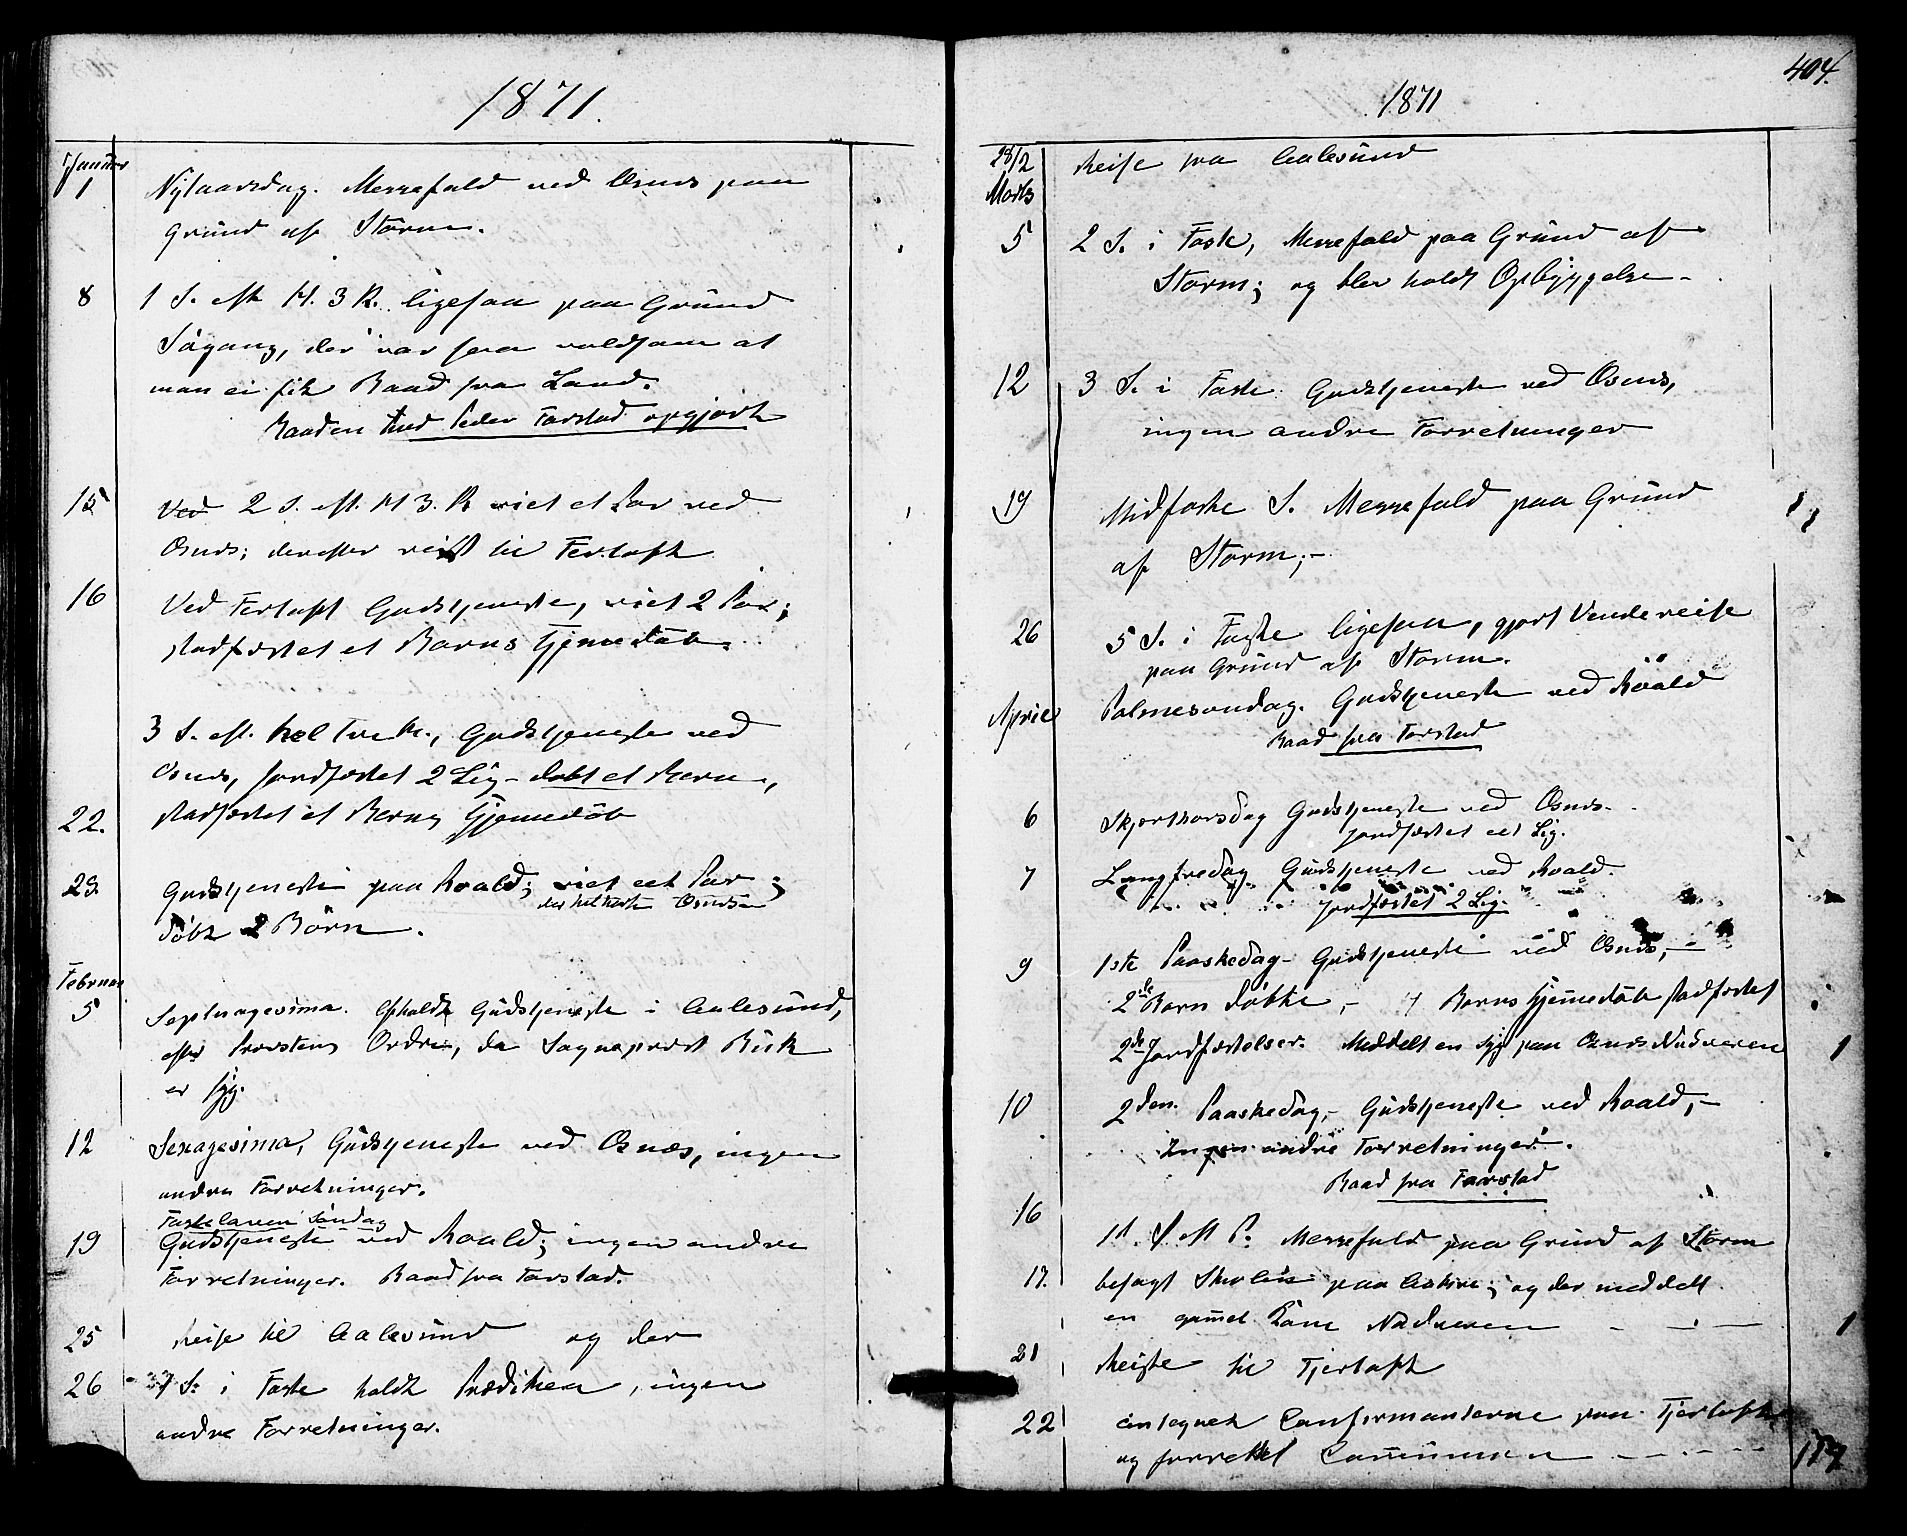 1871.
Januar
1 Nytaarsdag. Messefald ved Osnæs paa
Grund af Storm.
8 1 S. eft H. 3 K. ligesaa paa Grund
Søgang, der var saa voldsom at
man ei fik Baad fra Land.
Baaden med Peder Farstad opgjort
15 Ved 2 S. eft. H 3. K viet et Par ved
Osnæs; derefter reist til Fjertoft
16 Ved Fjertoft Gudstjeneste, viet 2 Par;
stadfæstet et Barns Hjemmedøb.
3 S. eft. hel tre K., Gudstjeneste ved
Osnæs, jordfæstet 2 Lig - døbt et Barn,
22. stadfæstet et Barns Hjemmedøb
29. Gudstjeneste paa Roald; viet eet Par;
døbt 2 Børn.
Februar
5 Septuagesima. Afholdt Gudstjeneste i Aalesund,
efter Provstens Ordre, da Sognepræst Buck
er syg.
12 Sexagesima, Gudstjeneste ved Osnæs, ingen
andre Forretninger.
Fastelavns Søndag
19 Gudstjeneste ved Roald; ingen andre
Forretninger. Baad fra Farstad.
25 Reise til Aalesund og der
26 1 S. i Faste holdt Prædiken, ingen
andre Forretninger.
404.
1871
28/2 Reise fra Aalesund
Marts
5 2 S. i Faste, Messefald paa Grund af
Storm; og blev holdt Opbyggelse -
12 3 S. i Faste Gudstjeneste ved Osnæs,
ingen andre Forretninger
19 Midfaste S. Messefald paa Grund
af Storm; -
26 5 S. i Faste ligesaa, gjort Vendereise
paa Grund af Storm.
April Palmesøndag. Gudstjeneste ved Roald
Baad fra Farstad
6 Skjærthorsdag Gudstjeneste ved Osnæs.
jordfæstet eet Lig.
7 Langfredag Gudstjeneste ved Roald.
jordfæstet 2 Lig.
9 1ste Paaskedag - Gudstjeneste ved Osnæs, -
2de Børn døbte, - 4 Børns Hjemmedøb stadfæstet
2de Jordfæstelser. Meddelt en syg paa Osnæs Nadveren 1
10 2den Paaskedag, - Gudstjeneste ved Roald, -
Ingen andre Forretninger.
Baad fra Farstad
16 1st. S. eft P. Messefald paa Grund af Storm
17. besøgt Skolen paa; og der meddelt
en gammel Kone Nadveren - - - 1
21 Reiste til Fjertoft
22 antegnet Confirmanterne paa Fjertoft
og forrettet Communion - - - -